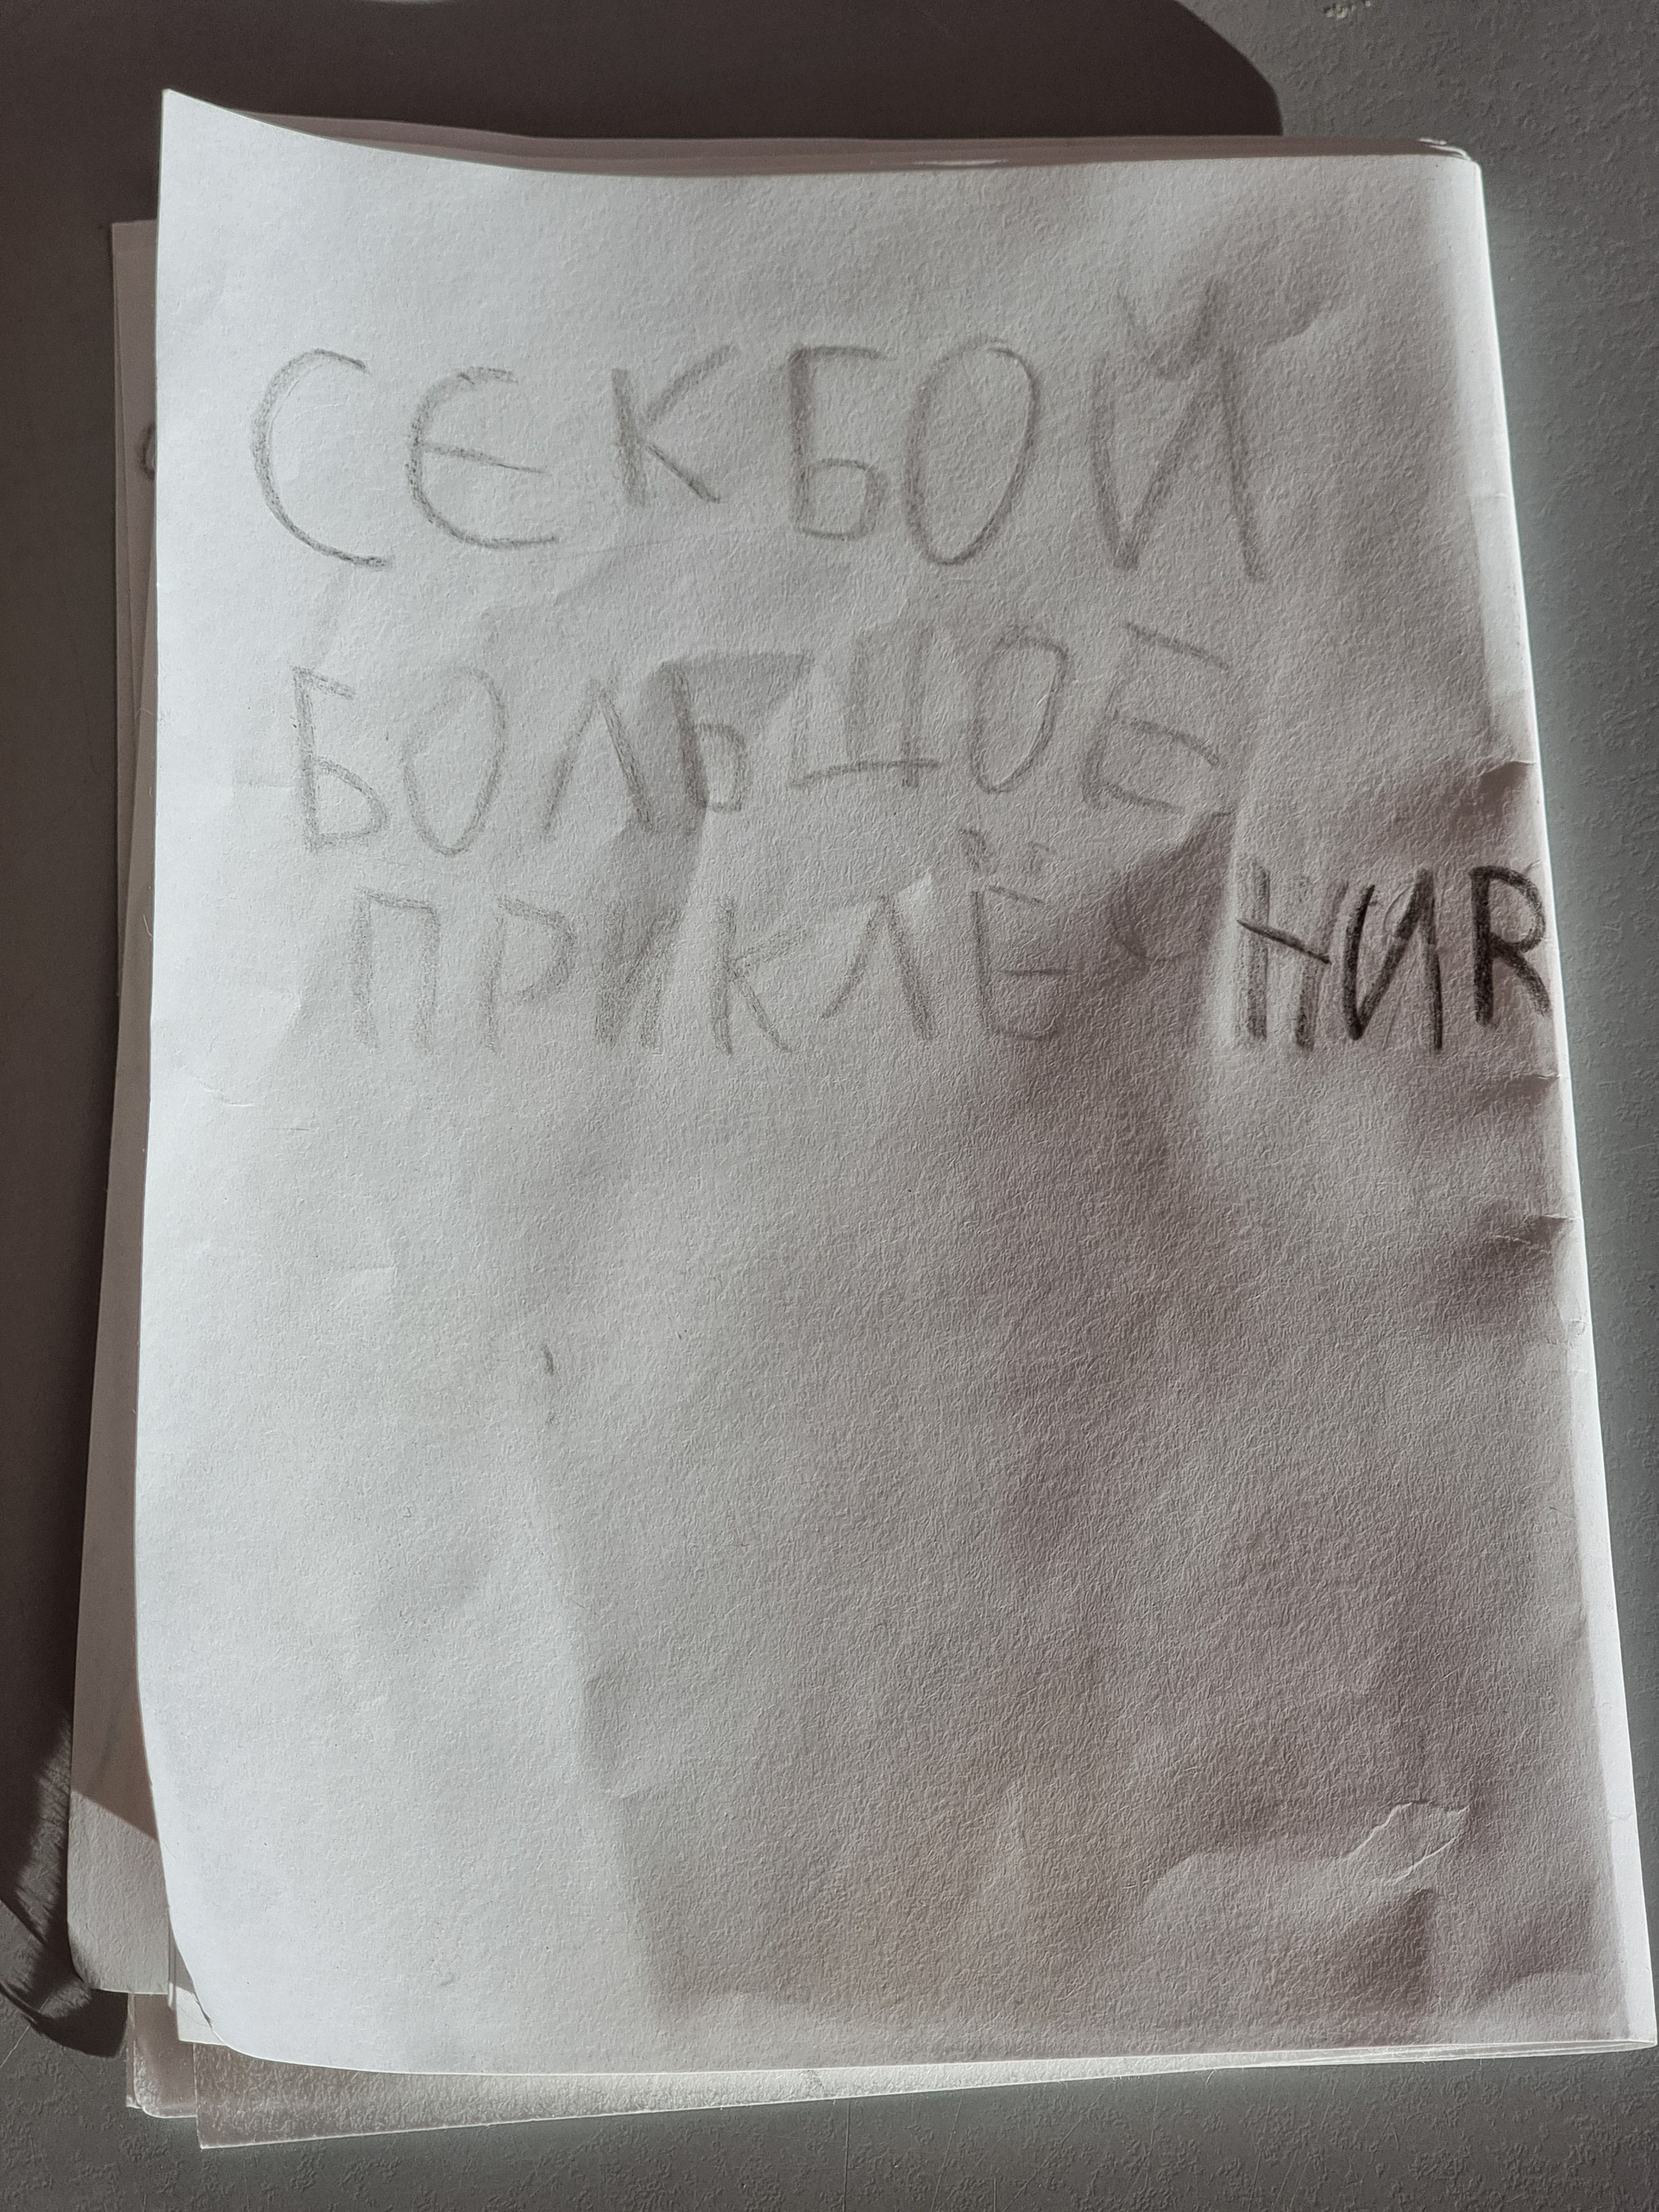 СЕКБОЙ
БОЛЬШОЕ
ПРИКЛЕ НИЯ